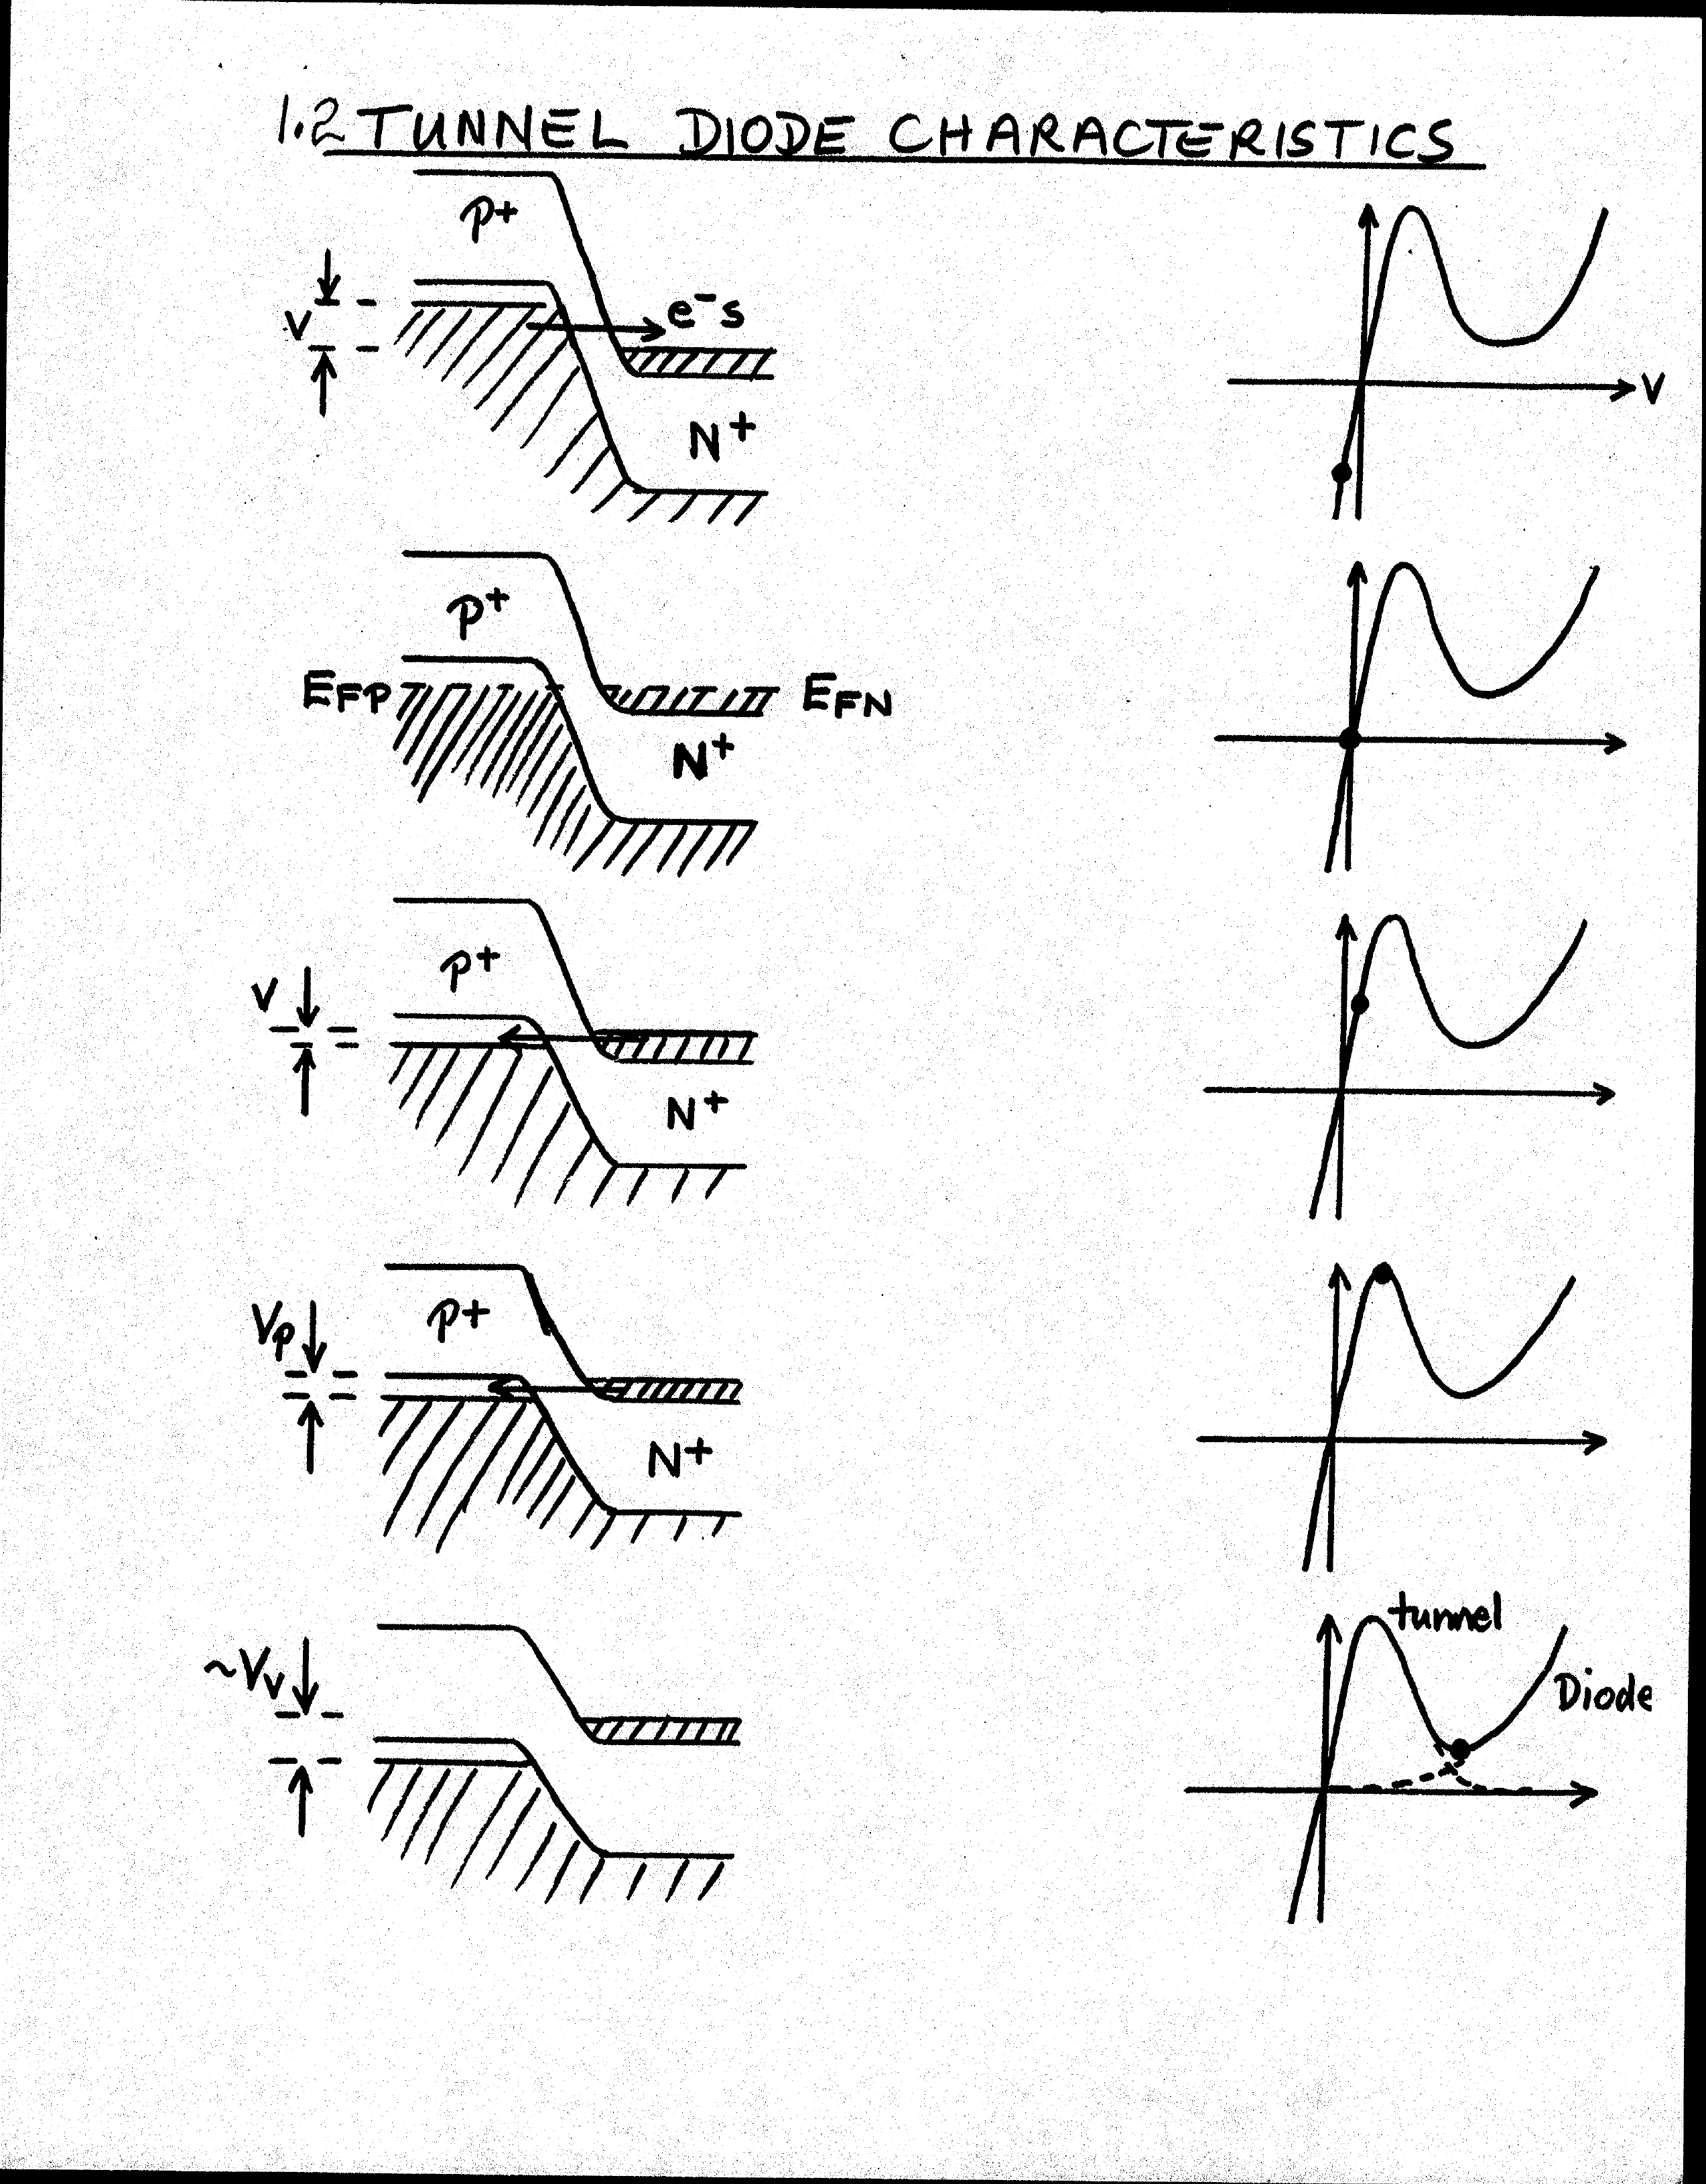 1.2 TUNNEL DIODE CHARACTERISTICS
P+
V
e⁻s
N+
V
P+
EFP
EFN
N+
P+
V
N+
P+
Vp
N+
~Vv
tunnel
Diode